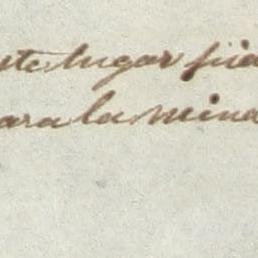 ste lugar fué
ara la mina